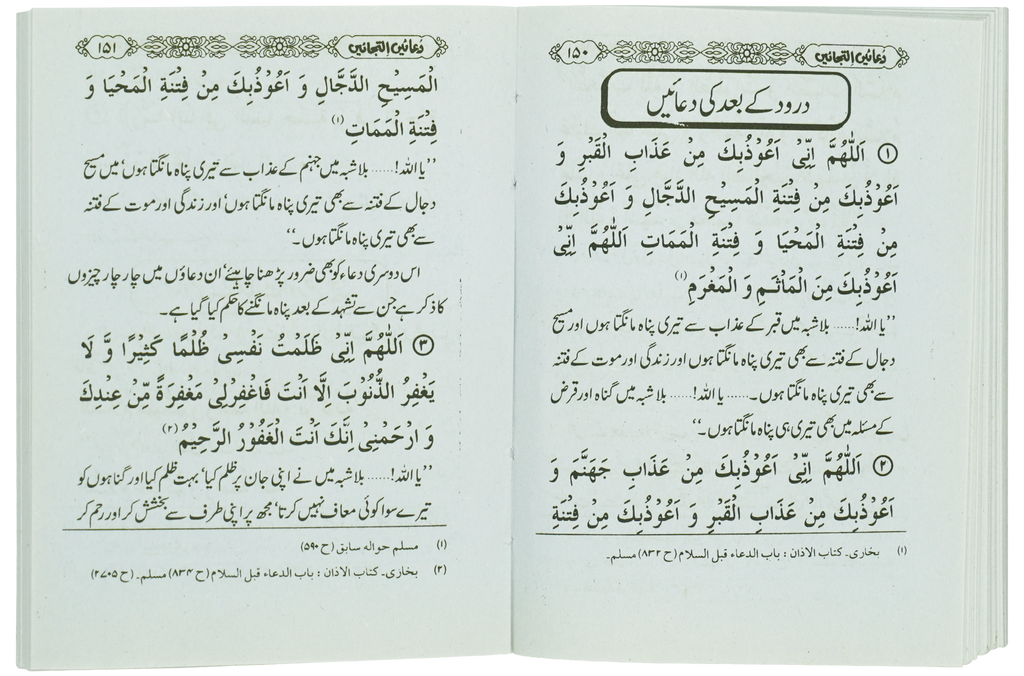 دعائیں التجائیں
۱۵۰
درود کے بعد کی دعائیں
① اَللّٰهُمَّ اِنِّیْ اَعُوْذُبِكَ مِنْ عَذَابِ الْقَبْرِ وَ
اَعُوْذُبِكَ مِنْ فِتْنَةِ الْمَسِيْحِ الدَّجَّالِ وَ اَعُوْذُبِكَ
مِنْ فِتْنَةِ الْمَحْيَا وَ فِتْنَةِ الْمَمَاتِ اَللّٰهُمَّ اِنِّیْ
اَعُوْذُبِكَ مِنَ الْمَاْثَمِ وَ الْمَغْرَمِ (۱)
’’یا اللہ!...... بلاشبہ میں قبر کے عذاب سے تیری پناہ مانگتا ہوں اور مسیح
دجال کے فتنہ سے بھی تیری پناہ مانگتا ہوں اور زندگی اور موت کے فتنہ
سے بھی تیری پناہ مانگتا ہوں۔...... یا اللہ!...... بلاشبہ میں گناہ اور قرض
کے مسئلہ میں بھی تیری ہی پناہ مانگتا ہوں۔‘‘
② اَللّٰهُمَّ اِنِّیْ اَعُوْذُبِكَ مِنْ عَذَابِ جَهَنَّمَ وَ
اَعُوْذُبِكَ مِنْ عَذَابِ الْقَبْرِ وَ اَعُوْذُبِكَ مِنْ فِتْنَةِ
(۱) بخاری۔ کتاب الاذان : باب الدعاء قبل السلام (ح ۸۳۲) مسلم۔
دعائیں التجائیں
۱۵۱
الْمَسِيْحِ الدَّجَّالِ وَ اَعُوْذُبِكَ مِنْ فِتْنَةِ الْمَحْيَا وَ
فِتْنَةِ الْمَمَاتِ (۱)
’’یا اللہ!...... بلاشبہ میں جہنم کے عذاب سے تیری پناہ مانگتا ہوں‘ میں مسیح
دجال کے فتنہ سے بھی تیری پناہ مانگتا ہوں‘ اور زندگی اور موت کے فتنہ
سے بھی تیری پناہ مانگتا ہوں۔‘‘
اس دوسری دعاء کو بھی ضرور پڑھنا چاہئے‘ ان دعاؤں میں چار چار چیزوں
کا ذکر ہے جن سے تشہد کے بعد پناہ مانگنے کا حکم کیا گیا ہے۔
③ اَللّٰهُمَّ اِنِّیْ ظَلَمْتُ نَفْسِیْ ظُلْمًا كَثِيْرًا وَّ لَا
يَغْفِرُ الذُّنُوْبَ اِلَّا اَنْتَ فَاغْفِرْلِیْ مَغْفِرَةً مِّنْ عِنْدِكَ
وَ ارْحَمْنِیْ اِنَّكَ اَنْتَ الْغَفُوْرُ الرَّحِيْمُ (۲)
’’یا اللہ!...... بلاشبہ میں نے اپنی جان پر ظلم کیا‘ بہت ظلم کیا اور گناہوں کو
تیرے سوا کوئی معاف نہیں کرتا‘ مجھ پر اپنی طرف سے بخشش کر اور رحم کر
(۱) مسلم حوالہ سابق (ح ۵۹۰)
(۲) بخاری۔ کتاب الاذان : باب الدعاء قبل السلام (ح ۸۳۴) مسلم۔ (ح ۲۷۰۵)